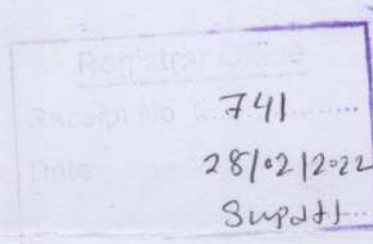 Registrar Office
Receipt No. 741
Date 28/02/2022
Supdtt